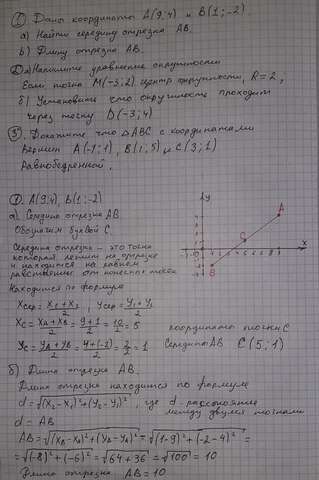 ① Даны координаты A(9;4) и B(1;-2)
а) Найти середину отрезка AB.
б) Длину отрезка AB.
② а) Напишите уравнение окружности
Если точка M(-3;2) центр окружности, R=2,
б) Установите что окружность проходит
через точку D(-3;4)
③ Докажите что ΔABC с координатами
вершин A(-1;1), B(1;5), и C(3;1)
Равнобедренный.
①. A(9;4), B(1;-2)
а) Середина отрезка AB.
Обозначим буквой C.
Середина отрезка - это точка
которая лежит на отрезке
и находится на равном
расстоянии от концевых точек
Находится по формуле
Xсер = X₁+X₂/2, Yсер = Y₁+Y₂/2
Xc = XA+XB/2 = 9+1/2 = 10/2 = 5 координаты точки C
Yc = YA+YB/2 = 4+(-2)/2 = 2/2 = 1 Середины AB C(5;1)
y
x
A
C
B
б) Длина отрезка AB.
Длина отрезка находится по формуле
d=√(X₂-X₁)²+(Y₂-Y₁)², где d-расстояние
между двумя точками
d = AB
AB=√(XB-XA)²+(YB-YA)² = √(1-9)²+(-2-4)² =
=√(-8)²+(-6)² = √64+36 = √100 = 10
Длина отрезка AB=10